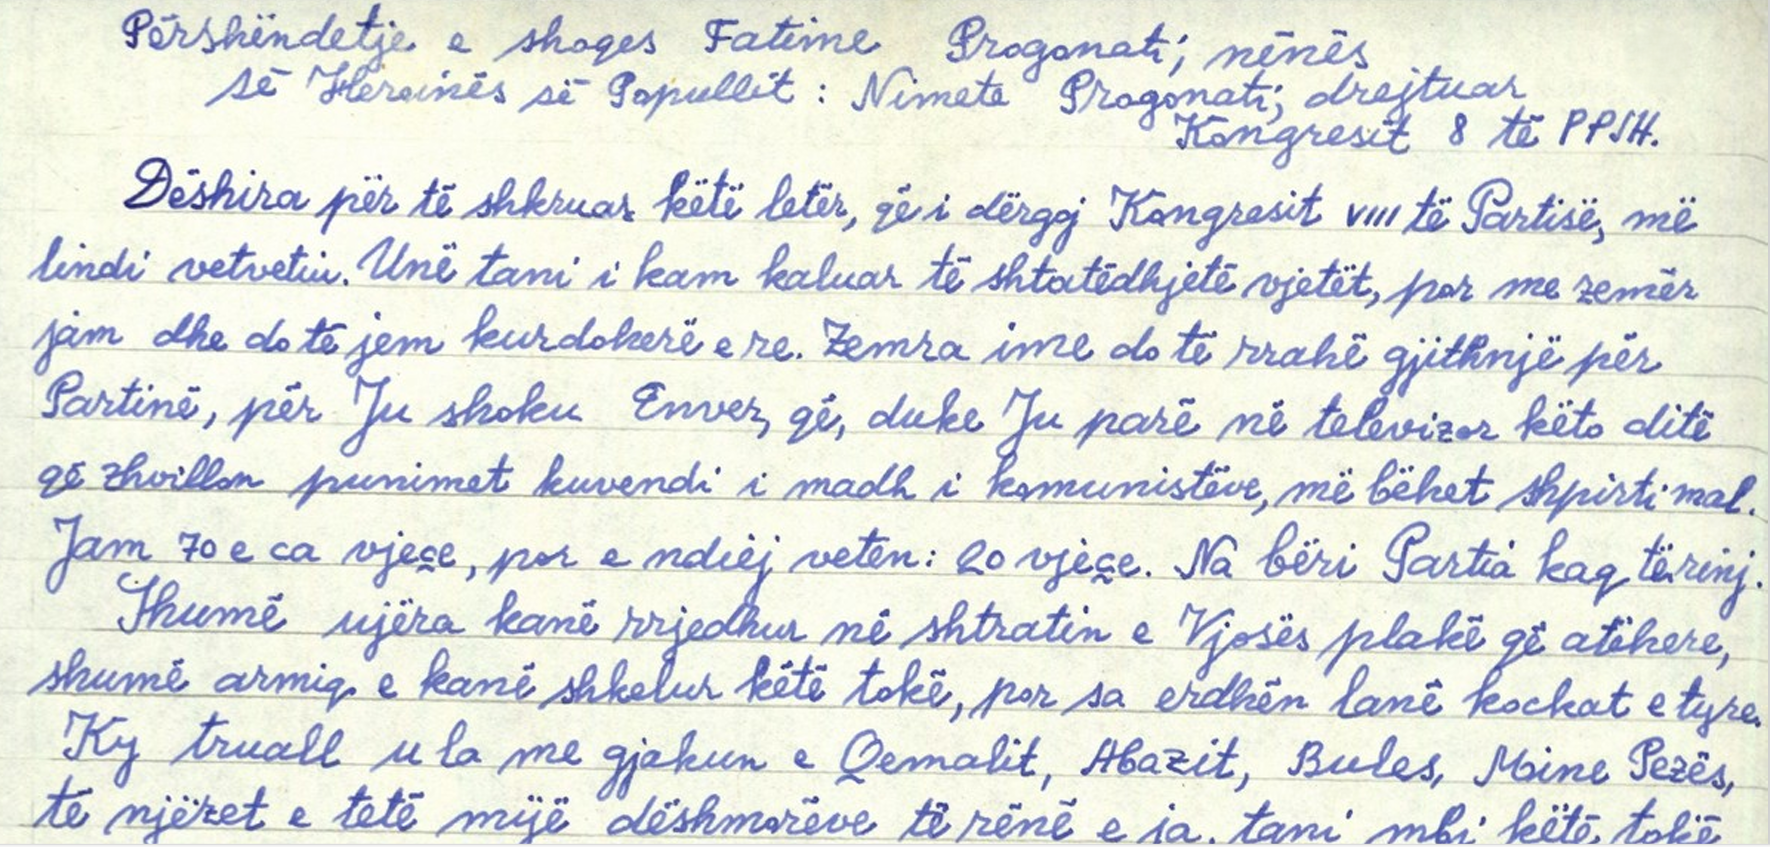 Përshëndetje e shoqes Fatime Progonati; nënës
së Heroinës së Popullit : Nimete Progonati; drejtuar
Kongresit 8 të PPSH.
Dëshira për të shkruar këtë letër, që i dërgoj Kongresit VIII të Partisë, më
lindi vetvetiu. Unë tani i kam kaluar të shtatëdhjetë vjetët, por me zemër
jam dhe do të jem kurdoherë e re. Zemra ime do të rrahë gjithnjë për
Partinë, për Ju shoku Enver, që, duke Ju parë në televizor këto ditë
që zhvillon punimet kuvendi i madh i komunistëve, më bëhet shpirti mal.
Jam 70 e ca vjeçe, por e ndiej veten: 20 vjeçe. Na bëri Partia kaq të rinj.
Shumë ujëra kanë rrjedhur në shtratin e Vjosës plakë që atëhere,
shumë armiq e kanë shkelur këtë tokë, por sa erdhën lanë kockat e tyre.
Ky truall u la me gjakun e Qemalit, Abazit, Bules, Mine Pezës,
të njëzet e tetë mijë dëshmorëve të rënë e ja, tani mbi këtë tokë